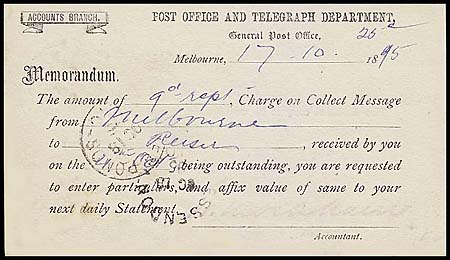 ACCOUNTS BRANCH.
POST OFFICE AND TELEGRAPH DEPARTMENT,
General Post Office, 25-2
Melbourne, 17-10- 1895
Memorandum.
The amount of 9d rept, Charge on Collect Message
from Melbourne
to Reiser, received by you
on the being outstanding, you are requested
to enter particulars, and affix value of same to your
next daily Statement.
Accountant.